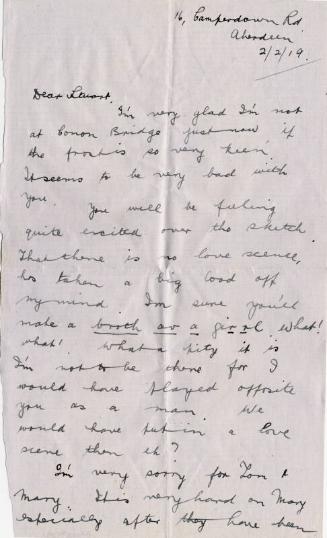 16, Camperdown Rd
Aberdeen
2/2/19.
Dear Stewart,
I'm very glad I'm not
at Conon Bridge just now if
the frost is so very keen.
It seems to be very bad with
you. You will be feeling
quite excited over the sketch
That there is no love scene,
has taken a big load off
my mind. I'm sure you'll
make a broth av a girrl. What!
what! What a pity it is
I'm not to be there for I
would have played opposite
you as a man. We
would have put in a love
scene then eh?
I'm very sorry for Tom &
Mary. It is very hard on Mary
especially after they have been